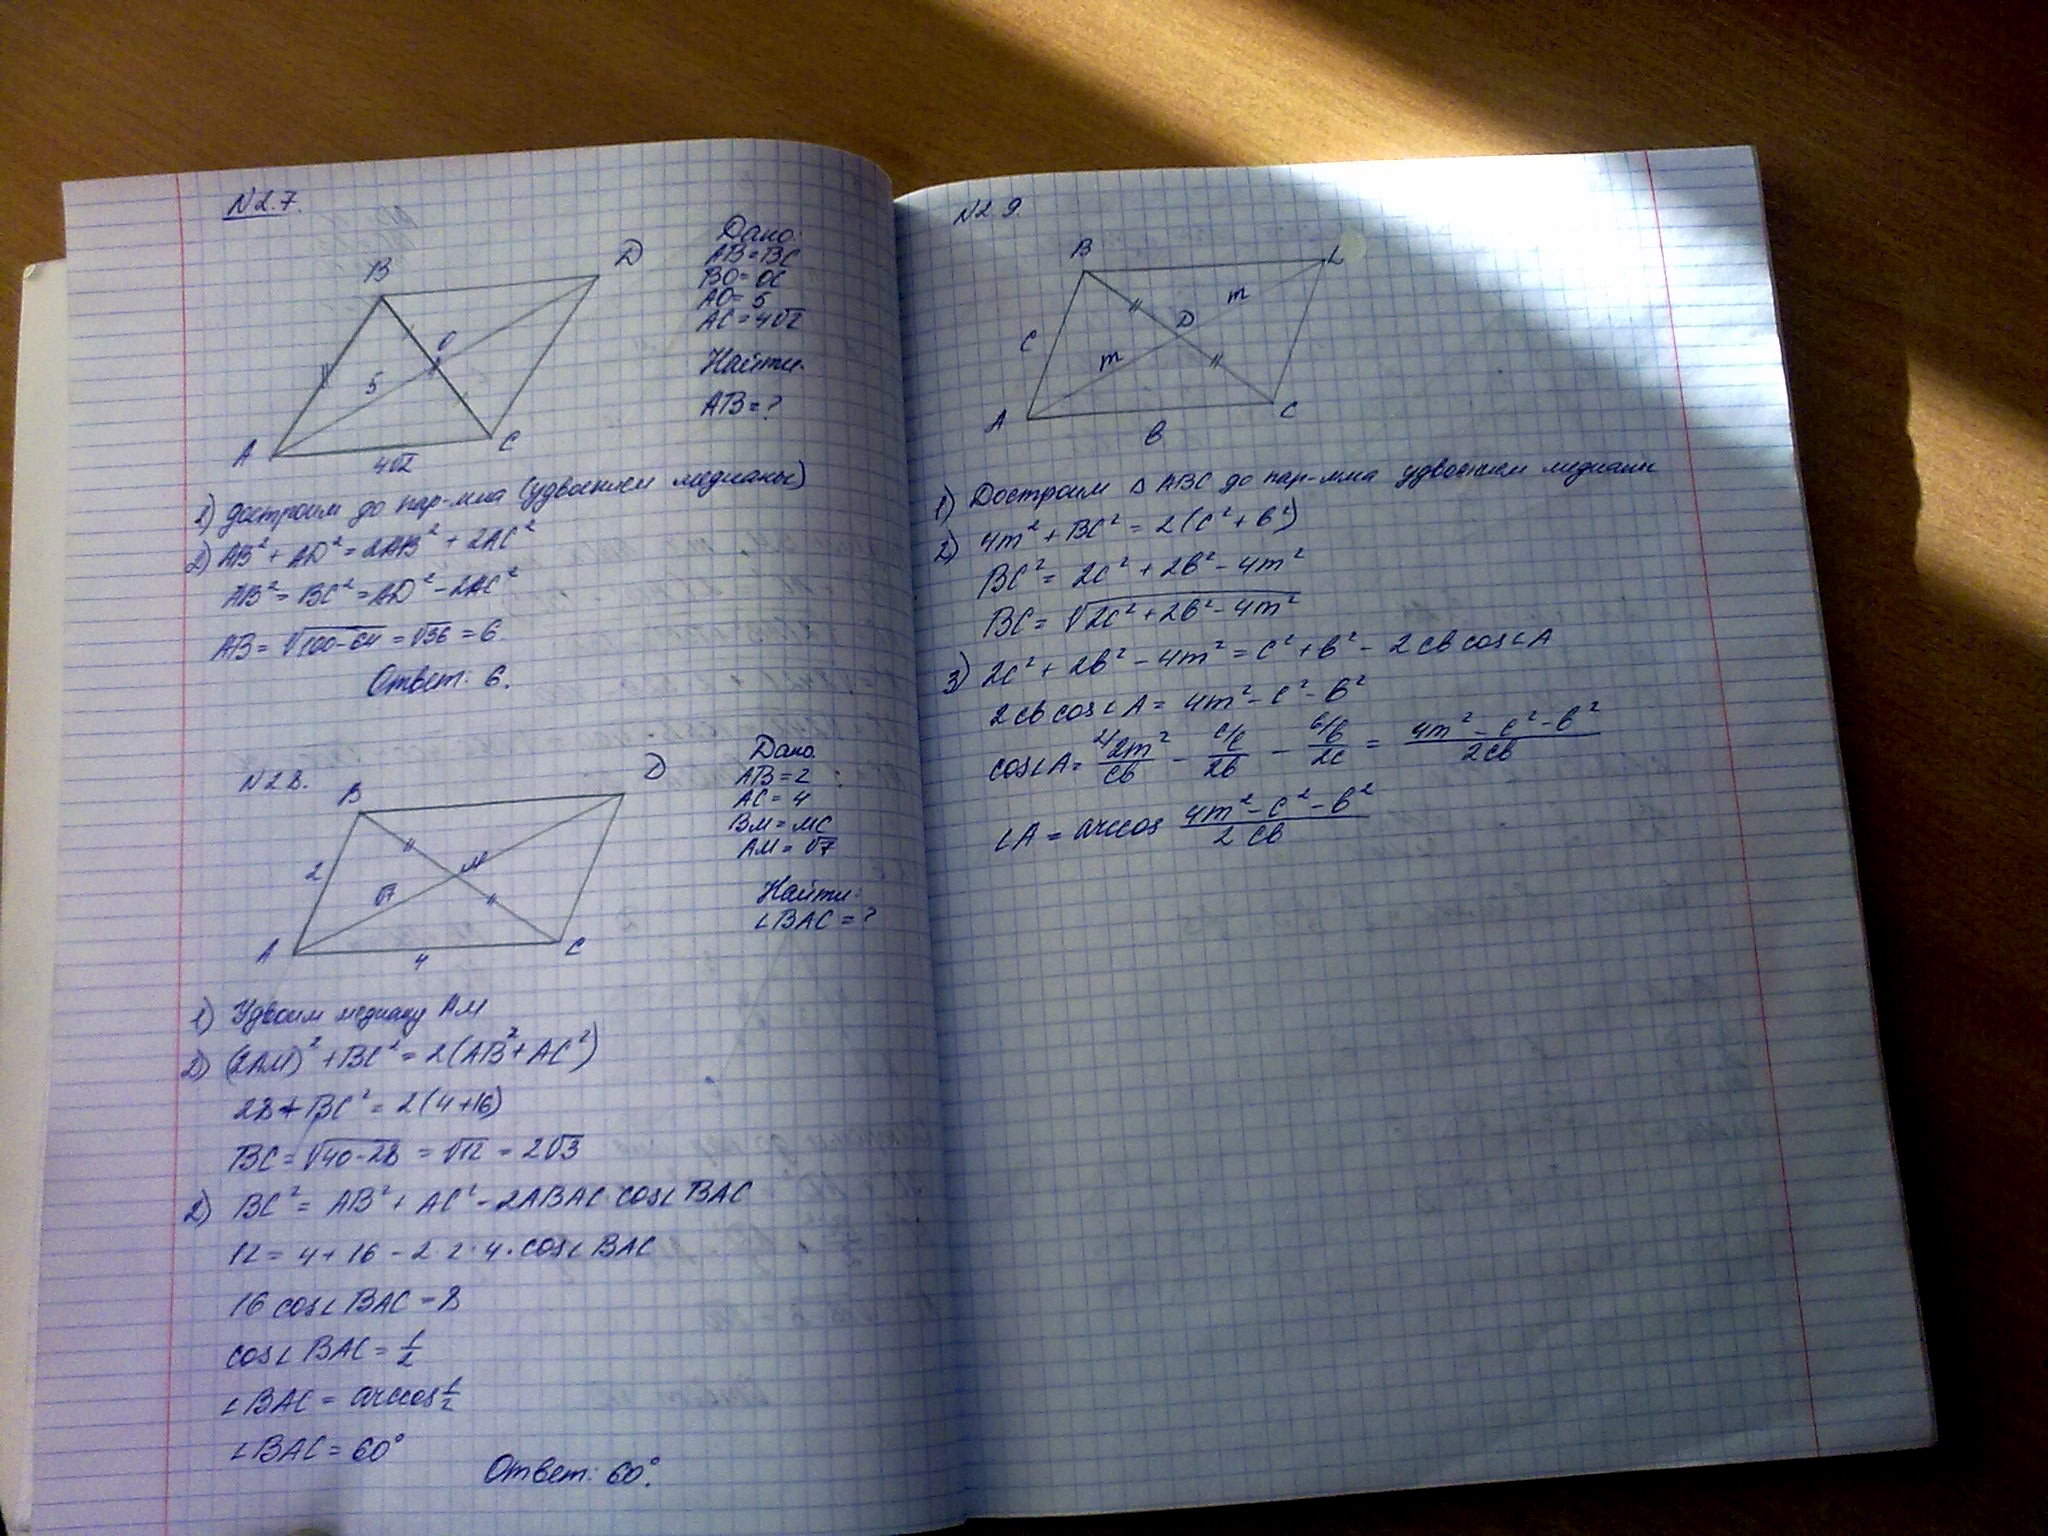 N2.7.
B
D
O
5
A
C
4√2
Дано:
AB=BC
BO=OC
AO=5
AC=4√2
Найти:
AB=?
1) достроим до пар-мма (удвоением медианы)
2) AB²+AD²=2AB²+2AC²
AB²=BC²=AD²-2AC²
AB=√100-64=√36=6
Ответ: 6.
N2.8.
B
D
2
M
√7
A
C
4
Дано:
AB=2
AC=4
BM=MC
AM=√7
Найти:
∠BAC=?
1) Удвоим медиану AM
2) (2AM)²+BC²=2(AB²+AC²)
28+BC²=2(4+16)
BC=√40-28=√12=2√3
2) BC²=AB²+AC²-2AB·AC·cos∠BAC
12=4+16-2·2·4·cos∠BAC
16cos∠BAC=8
cos∠BAC=1/2
∠BAC=arccos1/2
∠BAC=60°
Ответ: 60°.
N2.9.
B
L
m
D
c
m
A
C
b
1) Достроим △ABC до пар-мма удвоением медианы
2) 4m²+BC²=2(c²+b²)
BC²=2c²+2b²-4m²
BC=√2c²+2b²-4m²
3) 2c²+2b²-4m²=c²+b²-2cbcos∠A
2cbcos∠A=4m²-c²-b²
cos∠A=²⁄2m²/cb-ᶜ⁄c/2b-ᵇ⁄b/2c=4m²-c²-b²/2cb
∠A=arccos 4m²-c²-b²/2cb